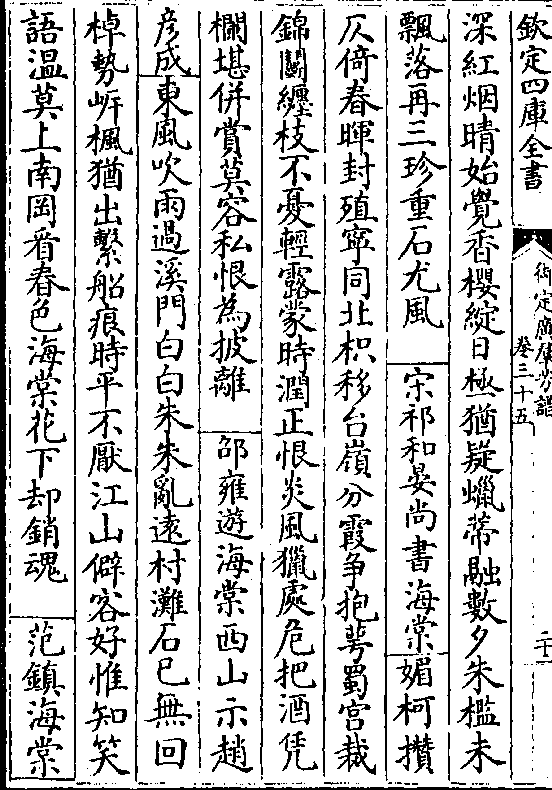 欽定四庫全書
御定廣羣芳譜
卷三十五
二十
深紅烟晴始覺香櫻綻日極猶疑蠟蒂融數夕朱檻未
飄落再三珍重石尤風 宋祁和晏尚書海棠 媚柯攢
仄倚春暉封殖寜同北枳移台嶺分霞争抱萼蜀宫裁
錦鬭纒枝不憂輕露蒙時潤正恨炎風獵處危把酒凭
欄堪併賞莫容私恨為披離 邵雍遊海棠西山示趙
彦成 東風吹雨過溪門白白朱朱亂逺村灘石已無回
棹勢㟁楓猶出繫船痕時平不厭江山僻客好惟知笑
語温莫上南岡㸔春色海棠花下却銷魂 范鎮海棠